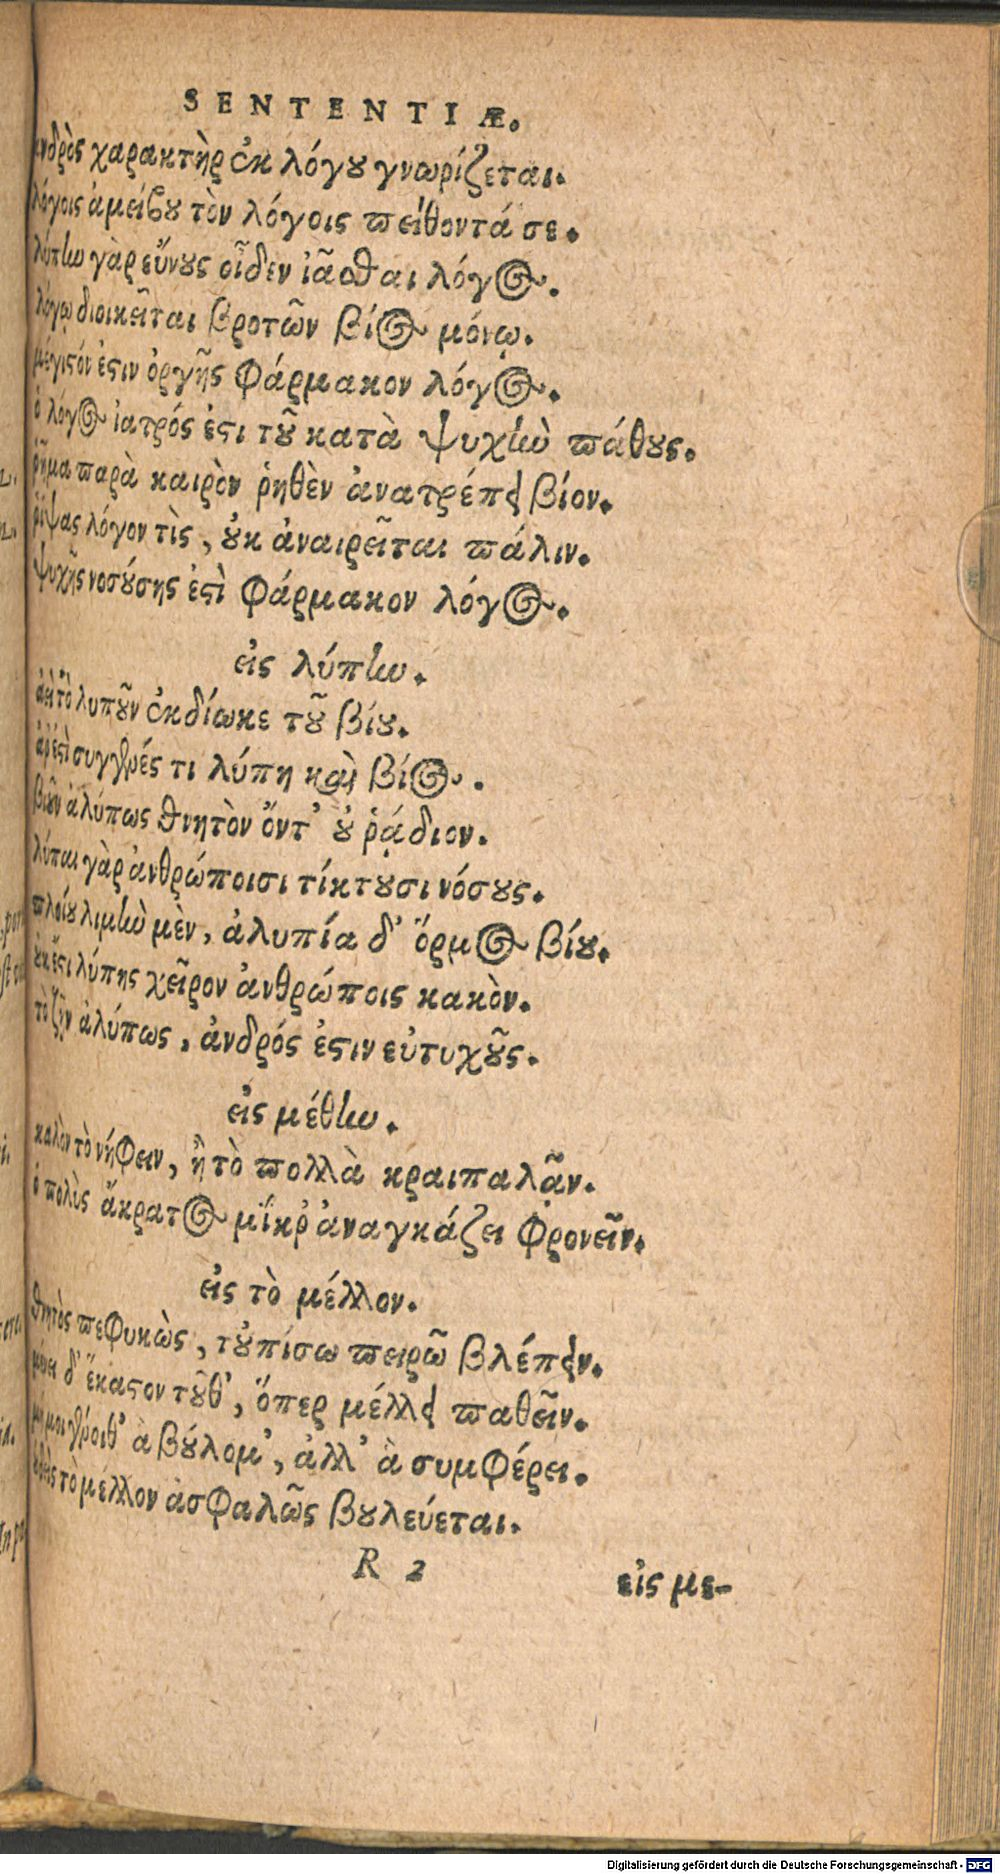 SENTENTIÆ.
ἀνδρὸς χαρακτὴρ ἐκ λόγου γνωρίζεται.
λόγοις ἀμείβου τὸν λόγοις πείθοντά σε.
λύπην γὰρ εὔνους οἶδεν ἰᾶσθαι λόγος.
λόγῳ διοικεῖται βροτῶν βίος μόνῳ.
μέγιστόν ἐστιν ὀργῆς φάρμακον λόγος.
ὁ λόγος ἰατρός ἐστι τοῦ κατὰ ψυχὴν πάθους.
ῥῆμα παρὰ καιρὸν ῥηθὲν ἀνατρέπει βίον.
ῥίψας λόγον τὶς, οὐκ ἀναιρεῖται πάλιν.
ψυχῆς νοσούσης ἐστὶ φάρμακον λόγος.
εἰς λύπην.
ἀεὶ τὸ λυποῦν ἐκδίωκε τοῦ βίου.
ἆρ' ἐστὶ συγγενές τι λύπη καὶ βίος.
βιοῦν ἀλύπως θνητὸν ὄντ' οὐ ῥᾴδιον.
λύπαι γὰρ ἀνθρώποισι τίκτουσι νόσους.
πλοίου λιμὴν μὲν, ἀλυπία δ' ὅρμος βίου.
οὐκ ἔστι λύπης χεῖρον ἀνθρώποις κακὸν.
τὸ ζῇν ἀλύπως, ἀνδρός ἐστιν εὐτυχοῦς.
εἰς μέθην.
καλὸν τὸ νήφειν, ἢ τὸ πολλὰ κραιπαλᾷν.
ὁ πολὺς ἄκρατος μίκρ' ἀναγκάζει φρονεῖν.
εἰς τὸ μέλλον.
θνητὸς πεφυκὼς, τοὐπίσω πειρῶ βλέπειν.
μένει δ' ἕκαστον τοῦθ', ὅπερ μέλλει παθεῖν.
μή μοι γένοιθ' ἃ βούλομ', ἀλλ' ἃ συμφέρει.
οὐδεὶς τὸ μέλλον ἀσφαλῶς βουλεύεται.
R 2
εἰς με-
Digitalisierung gefördert durch die Deutsche Forschungsgemeinschaft - DFG